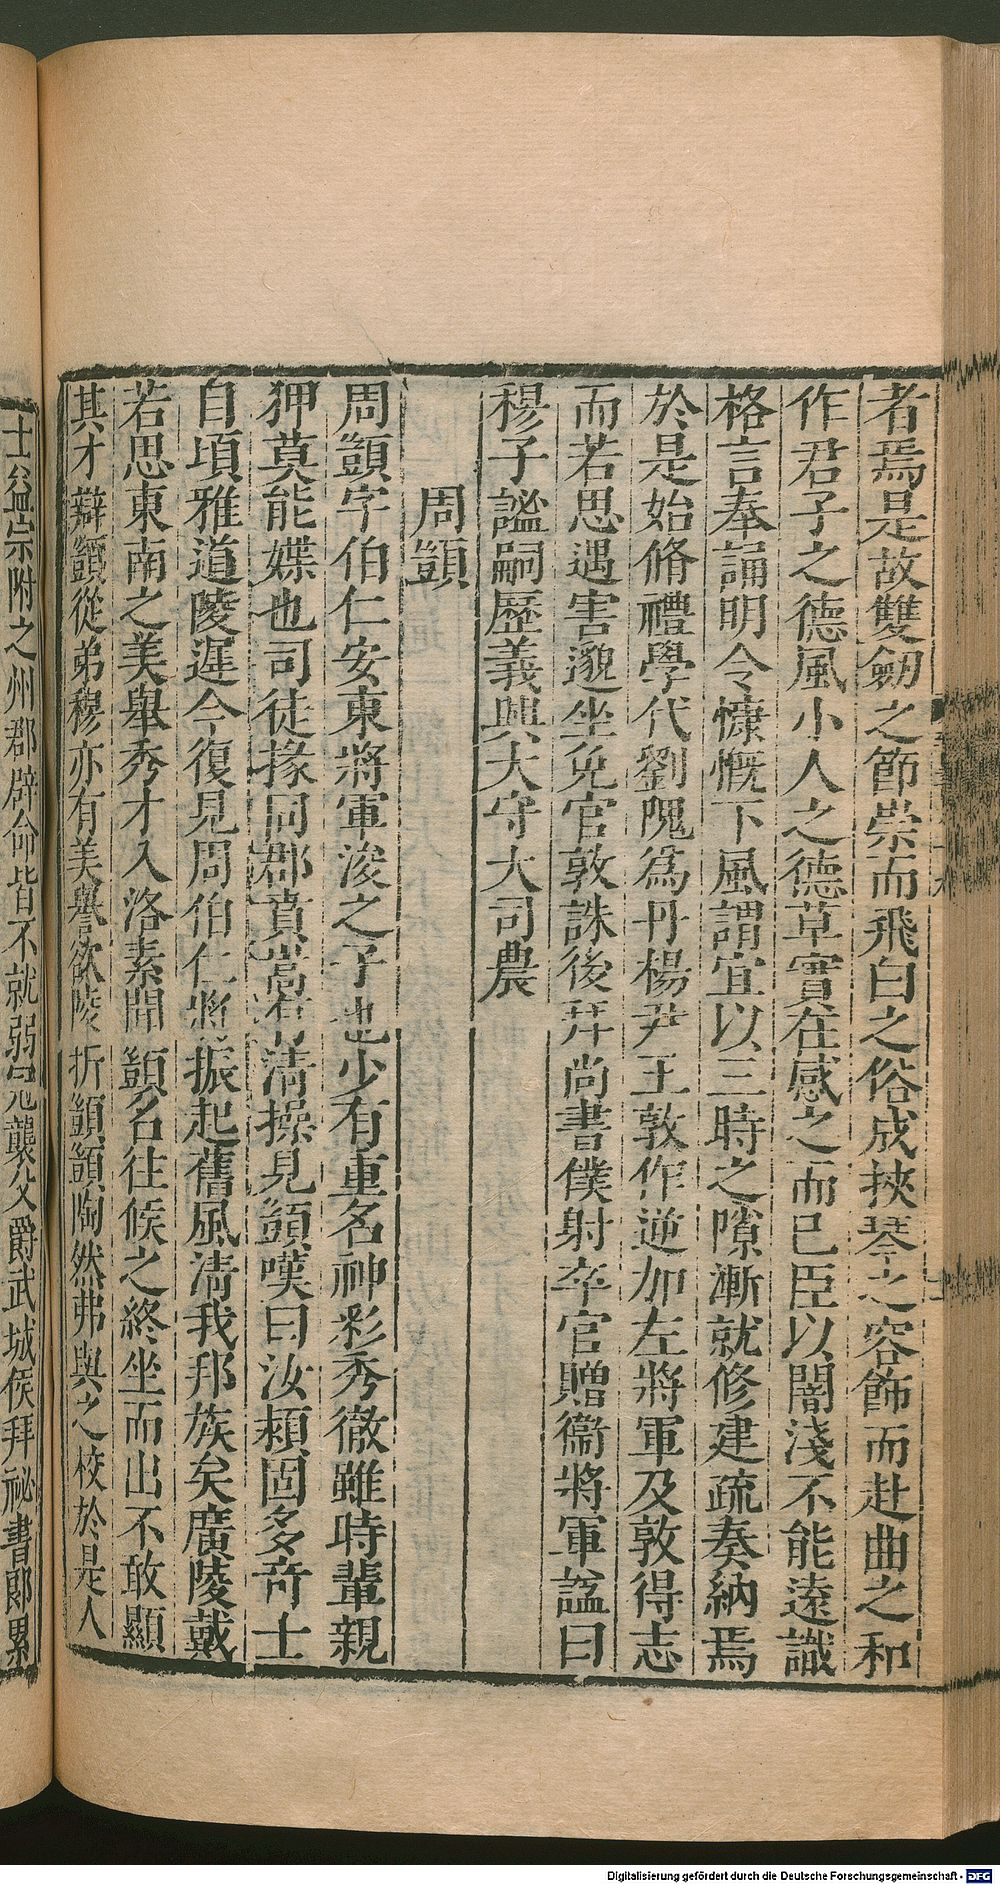 者焉是故雙劒之節崇而飛白之俗成挾琴之容飾而赴曲之和
作君子之德風小人之德草實在感之而已臣以闇淺不能遠識
格言奉誦明令慷慨下風謂宜以三時之隙漸就修建疏奏納焉
於是始脩禮學代劉隗爲丹楊尹王敦作逆加左將軍及敦得志
而若思遇害邈坐免官敦誅後拜尚書僕射卒官贈衞將軍謚曰
穆子謐嗣歷義興大守大司農
周顗
周顗字伯仁安東將軍浚之子也少有重名神彩秀徹雖時輩親
狎莫能媟也司徒掾同郡賁嵩有清操見顗嘆曰汝潁固多竒士
自頃雅道陵遲今復見周伯仁將振起舊風清我邦族矣廣陵戴
若思東南之美舉秀才入洛素聞顗名往候之終坐而出不敢顯
其才辯顗從弟穆亦有美譽欲陵折顗顗陶然弗與之校於是人
士益宗附之州郡辟命皆不就弱冠襲父爵武城侯拜祕書郎累
Digitalisierung gefördert durch die Deutsche Forschungsgemeinschaft - DFG